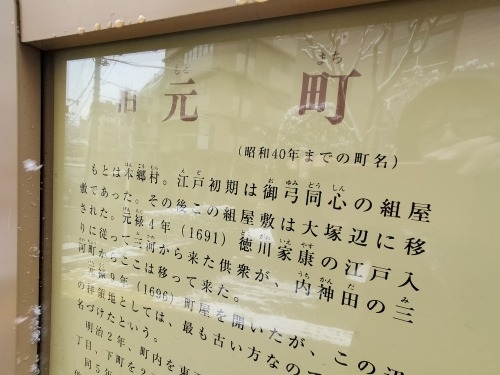 旧 元町
(昭和40年までの町名)
もとは本郷村。江戸初期は御弓同心の組屋
敷であった。その後この組屋敷は大塚辺に移
された。元禄4年(1691)徳川家康の江戸入
りに従って三河から来た供衆が、内神田の三
河町からここは移って来た。
元禄9年(1696)町屋を開いたが、この辺
の拝領地としては、最も古い方なの
名づけたという。
明治2年、町内を東
丁目、下町を2
同5年